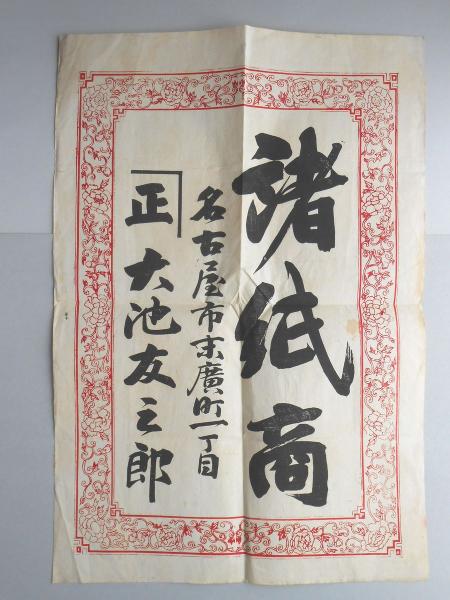 諸紙商
名古屋市末廣町一丁目
正 大池友之郎